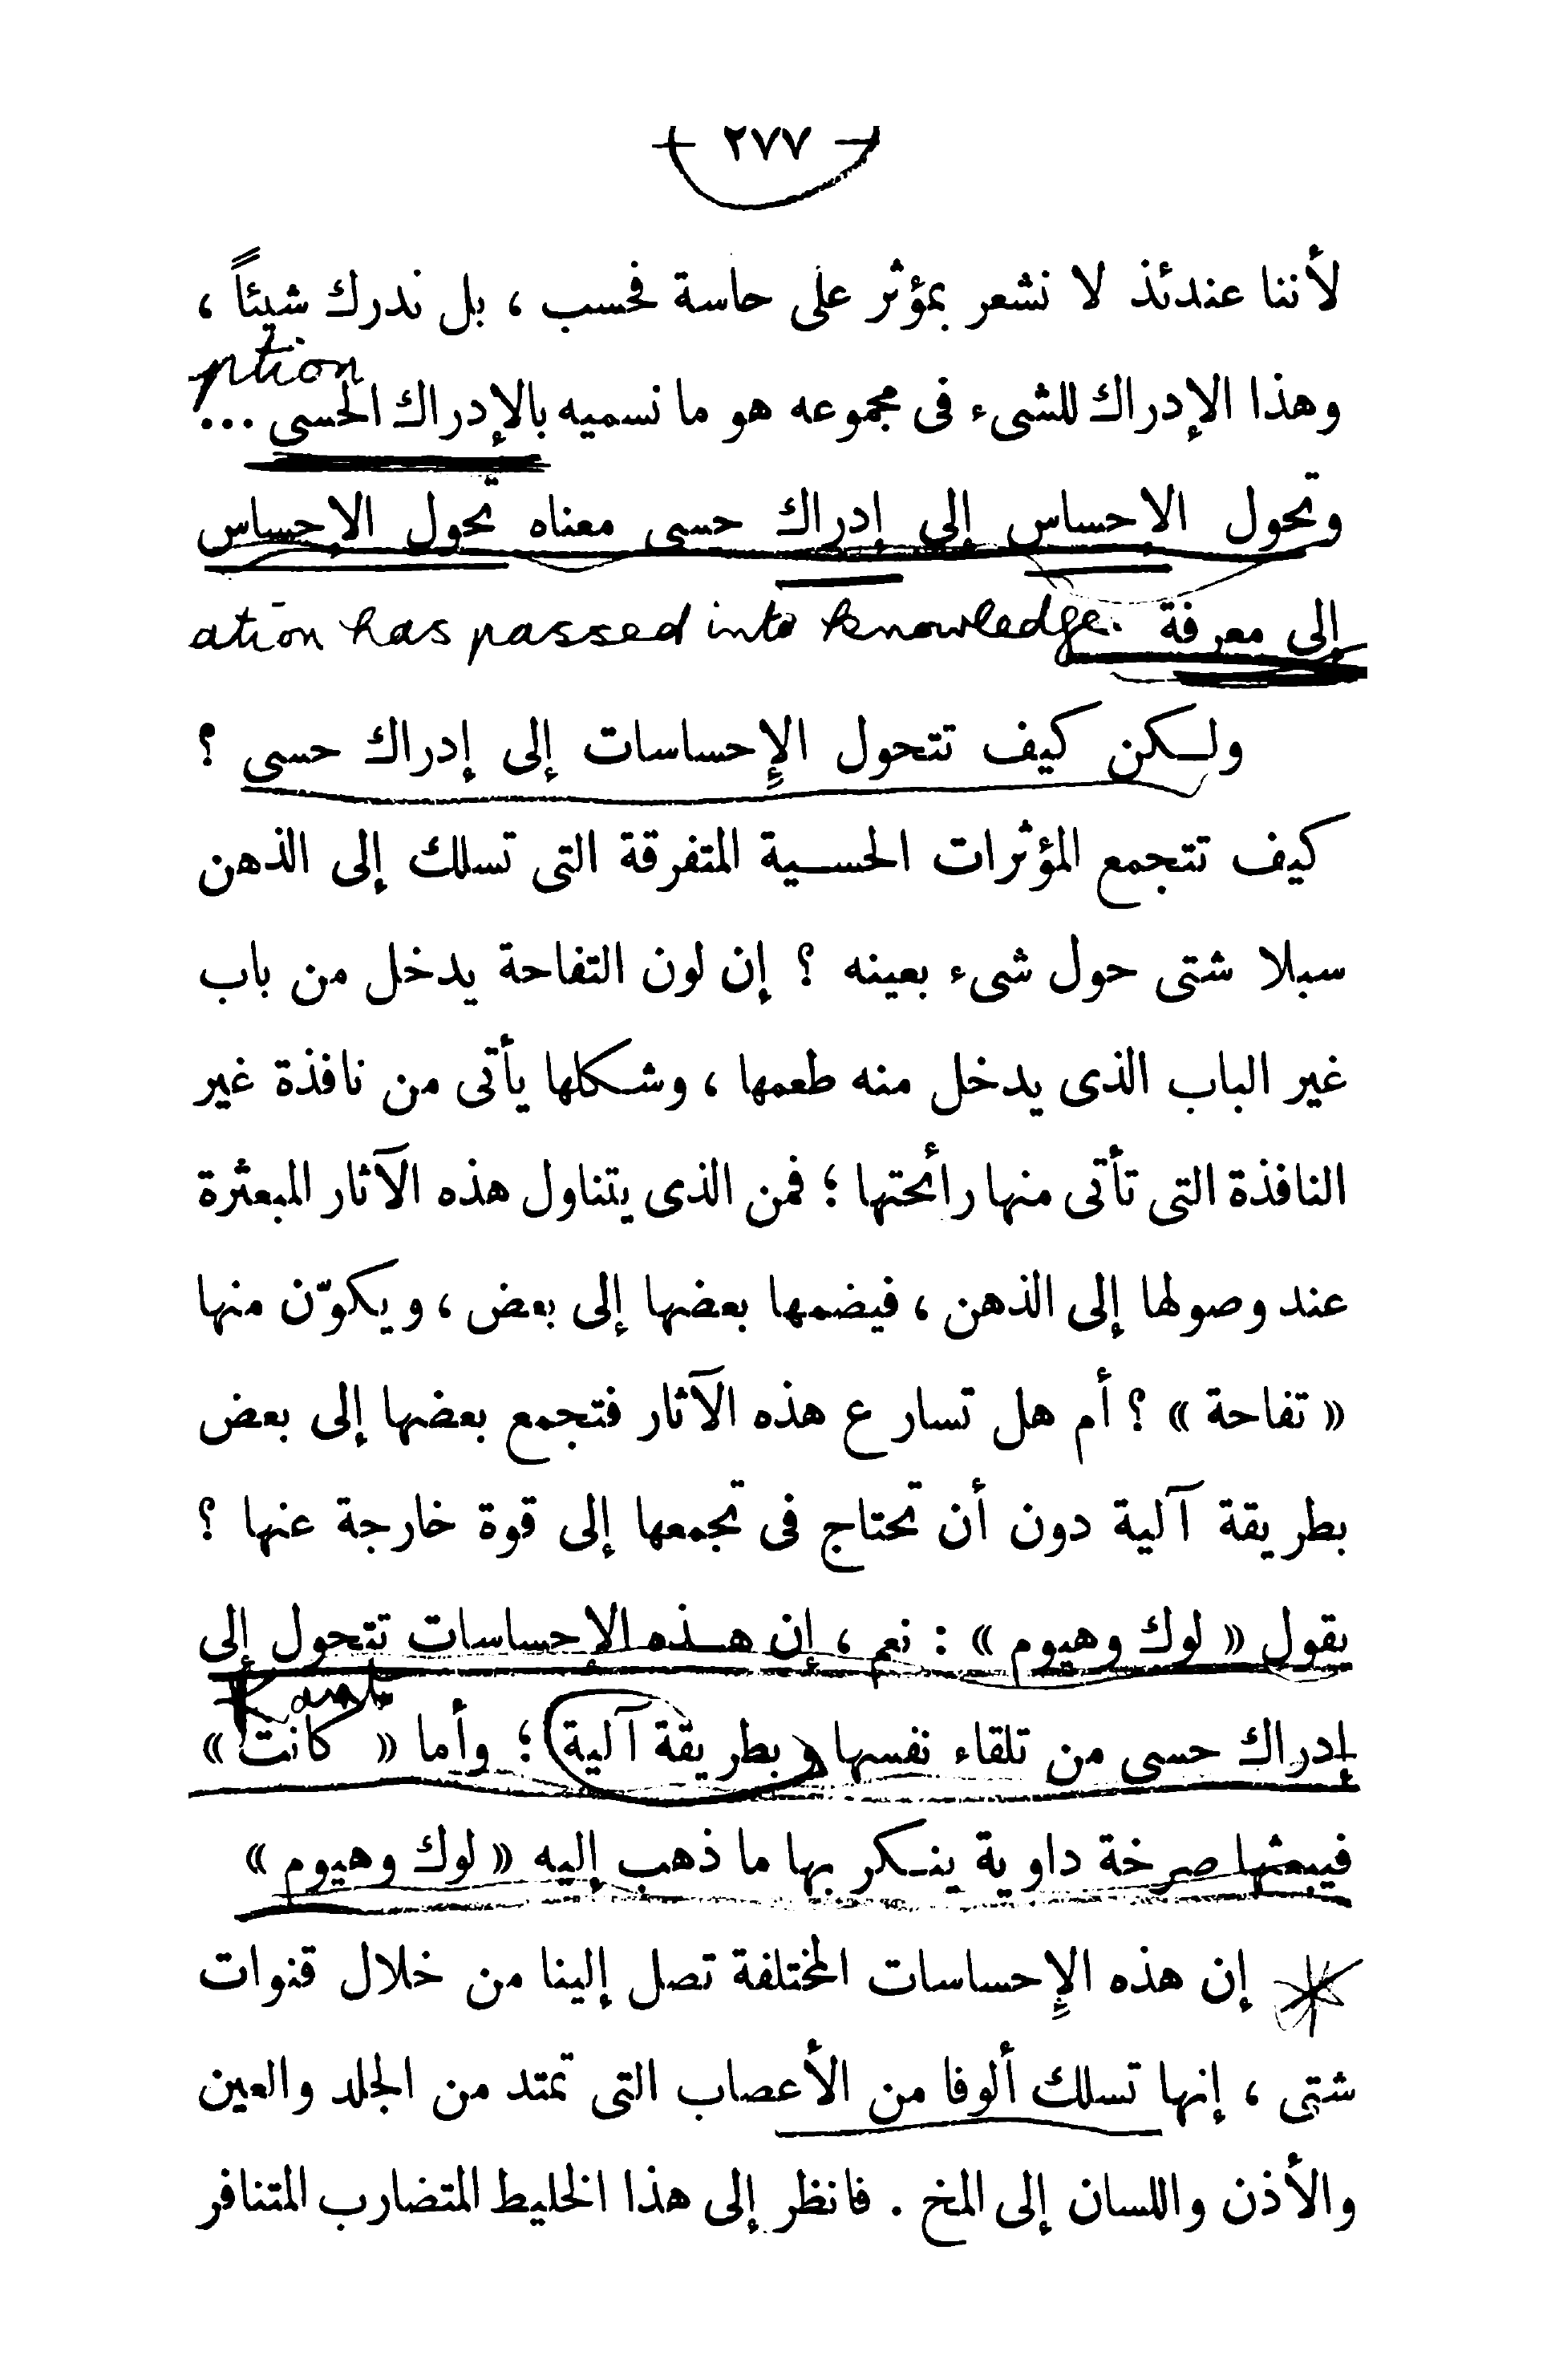 — ٢٧٧ —
لأننا عندئذ لا نشعر بمؤثر على حاسة فحسب ، بل ندرك شيئاً ،
ption
وهذا الإدراك للشىء فى مجموعه هو ما نسميه بالإدراك الحسى ...
وتحول الإحساس إلى إدراك حسى معناه تحول الإحساس
إلى معرفة .
ation has passed into knowledge
ولـكن كيف تتحول الإحساسات إلى إدراك حسى ؟
كيف تتجمع المؤثرات الحسـية المتفرقة التى تسلك إلى الذهن
سبلا شتى حول شىء بعينه ؟ إن لون التفاحة يدخل من باب
غير الباب الذى يدخل منه طعمها ، وشـكلها يأتى من نافذة غير
النافذة التى تأتى منها رائحتها ؛ فمن الذى يتناول هذه الآثار المبعثرة
عند وصولها إلى الذهن ، فيضمها بعضها إلى بعض ، ويكوّن منها
« تفاحة » ؟ أم هل تسارع هذه الآثار فتجمع بعضها إلى بعض
بطريقة آلية دون أن تحتاج فى تجمعها إلى قوة خارجة عنها ؟
يقول « لوك وهيوم » : نعم ، إن هـذه الإحساسات تتحول إلى
Kant
إدراك حسى من تلقاء نفسها وبطريقة آلية ؛ وأما « كانت »
فيبعثها صرخة داوية ينـكر بها ما ذهب إليه « لوك وهيوم »
إن هذه الإحساسات المختلفة تصل إلينا من خلال قنوات
شتى ، إنها تسلك ألوفا من الأعصاب التى تمتد من الجلد والعين
والأذن واللسان إلى المخ . فانظر إلى هذا الخليط المتضارب المتنافر